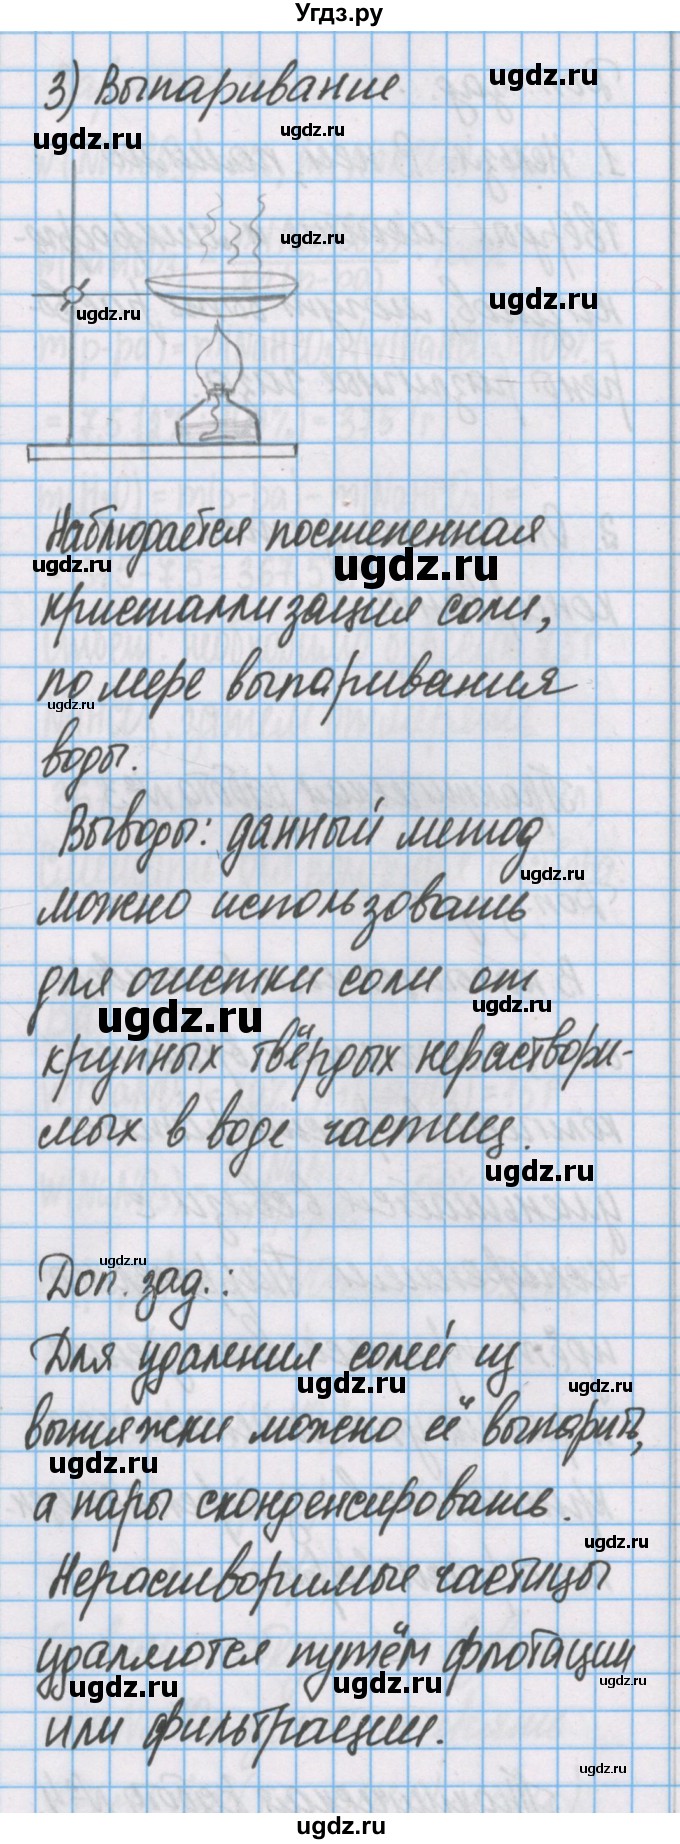 Угдз.ру
3) Выпаривание
ugdz.ru
ugdz.ru
ugdz.ru
ugdz.ru
ugdz.ru
ugdz.ru
Наблюдается постепенная
ugdz.ru
ugdz.ru
кристаллизация соли,
по мере выпаривания
ugdz.ru
воды.
Выводы: данный метод
ugdz.ru
можно использовать
для очистки соли от
ugdz.ru
ugdz.ru
крупных твёрдых нераствори-
мых в воде частиц.
ugdz.ru
ugdz.ru
Доп. зад.:
Для удаления солей из
ugdz.ru
ugdz.ru
вытяжки можно её выпарить,
ugdz.ru
а пары сконденсировать.
ugdz.ru
Нерастворимые частицы
удаляются путём флотации
ugdz.ru
ugdz.ru
ugdz.ru
или фильтрации.
ugdz.ru
www.ugdz.ru